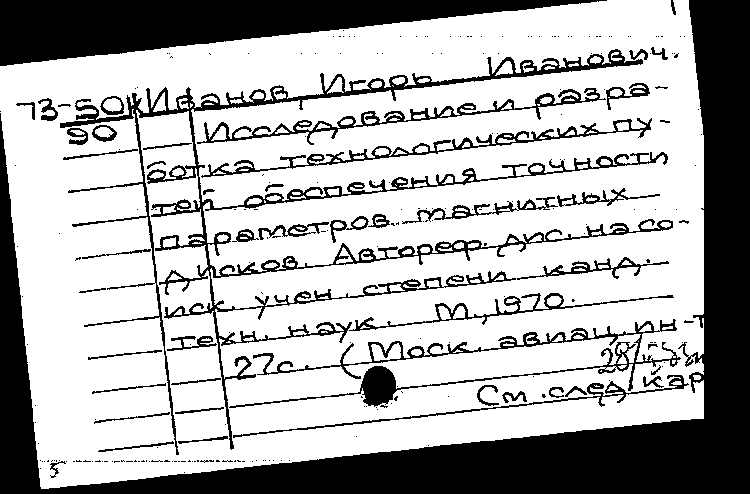 73-50к Иванов, Игорь Иванович.
90 Исследование и разра-
ботка технологических пу-
тей обеспечения точности
параметров магнитных
дисков. Автореф. дис. на со-
иск. учен. степени канд.
техн. наук. М., 1970.
27с. (Моск. авиац. ин-т
28/
См. след. кар
5